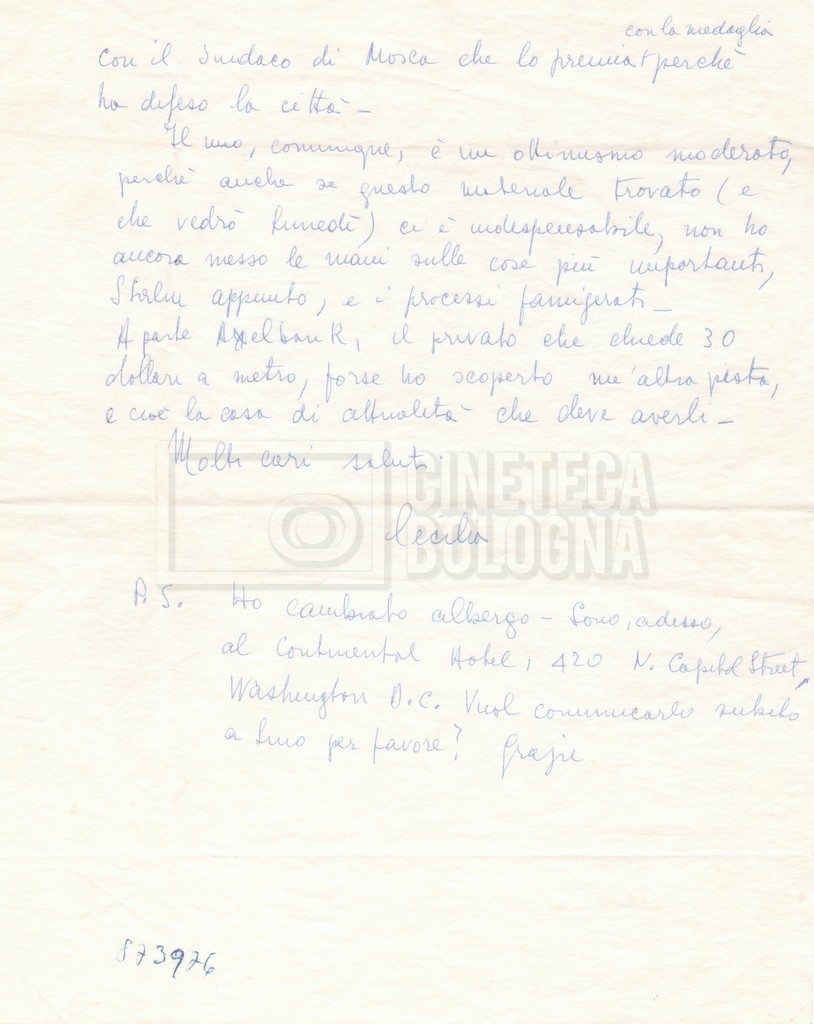 con la medaglia
con il Sindaco di Mosca che lo premia perchè
ha difeso la città -
Il mio, comunque, è un ottimismo moderato,
perchè anche se questo materiale trovato (e
che vedrò lunedì) ci è indispensabile, non ho
ancora messo le mani sulle cose più importanti,
Stalin appunto, e i processi famigerati -
A parte Axelbank, il privato che chiede 30
dollari a metro, forse ho scoperto un'altra pista,
e cioè la casa di attualità che deve averli -
Molti cari saluti.
CINETECA
BOLOGNA
Cecilia
P.S. Ho cambiato albergo - Sono, adesso,
al Continental Hotel, 420 N. Capitol Street,
Washington D.C. Vuol comunicarlo subito
a per favore? Grazie
873976